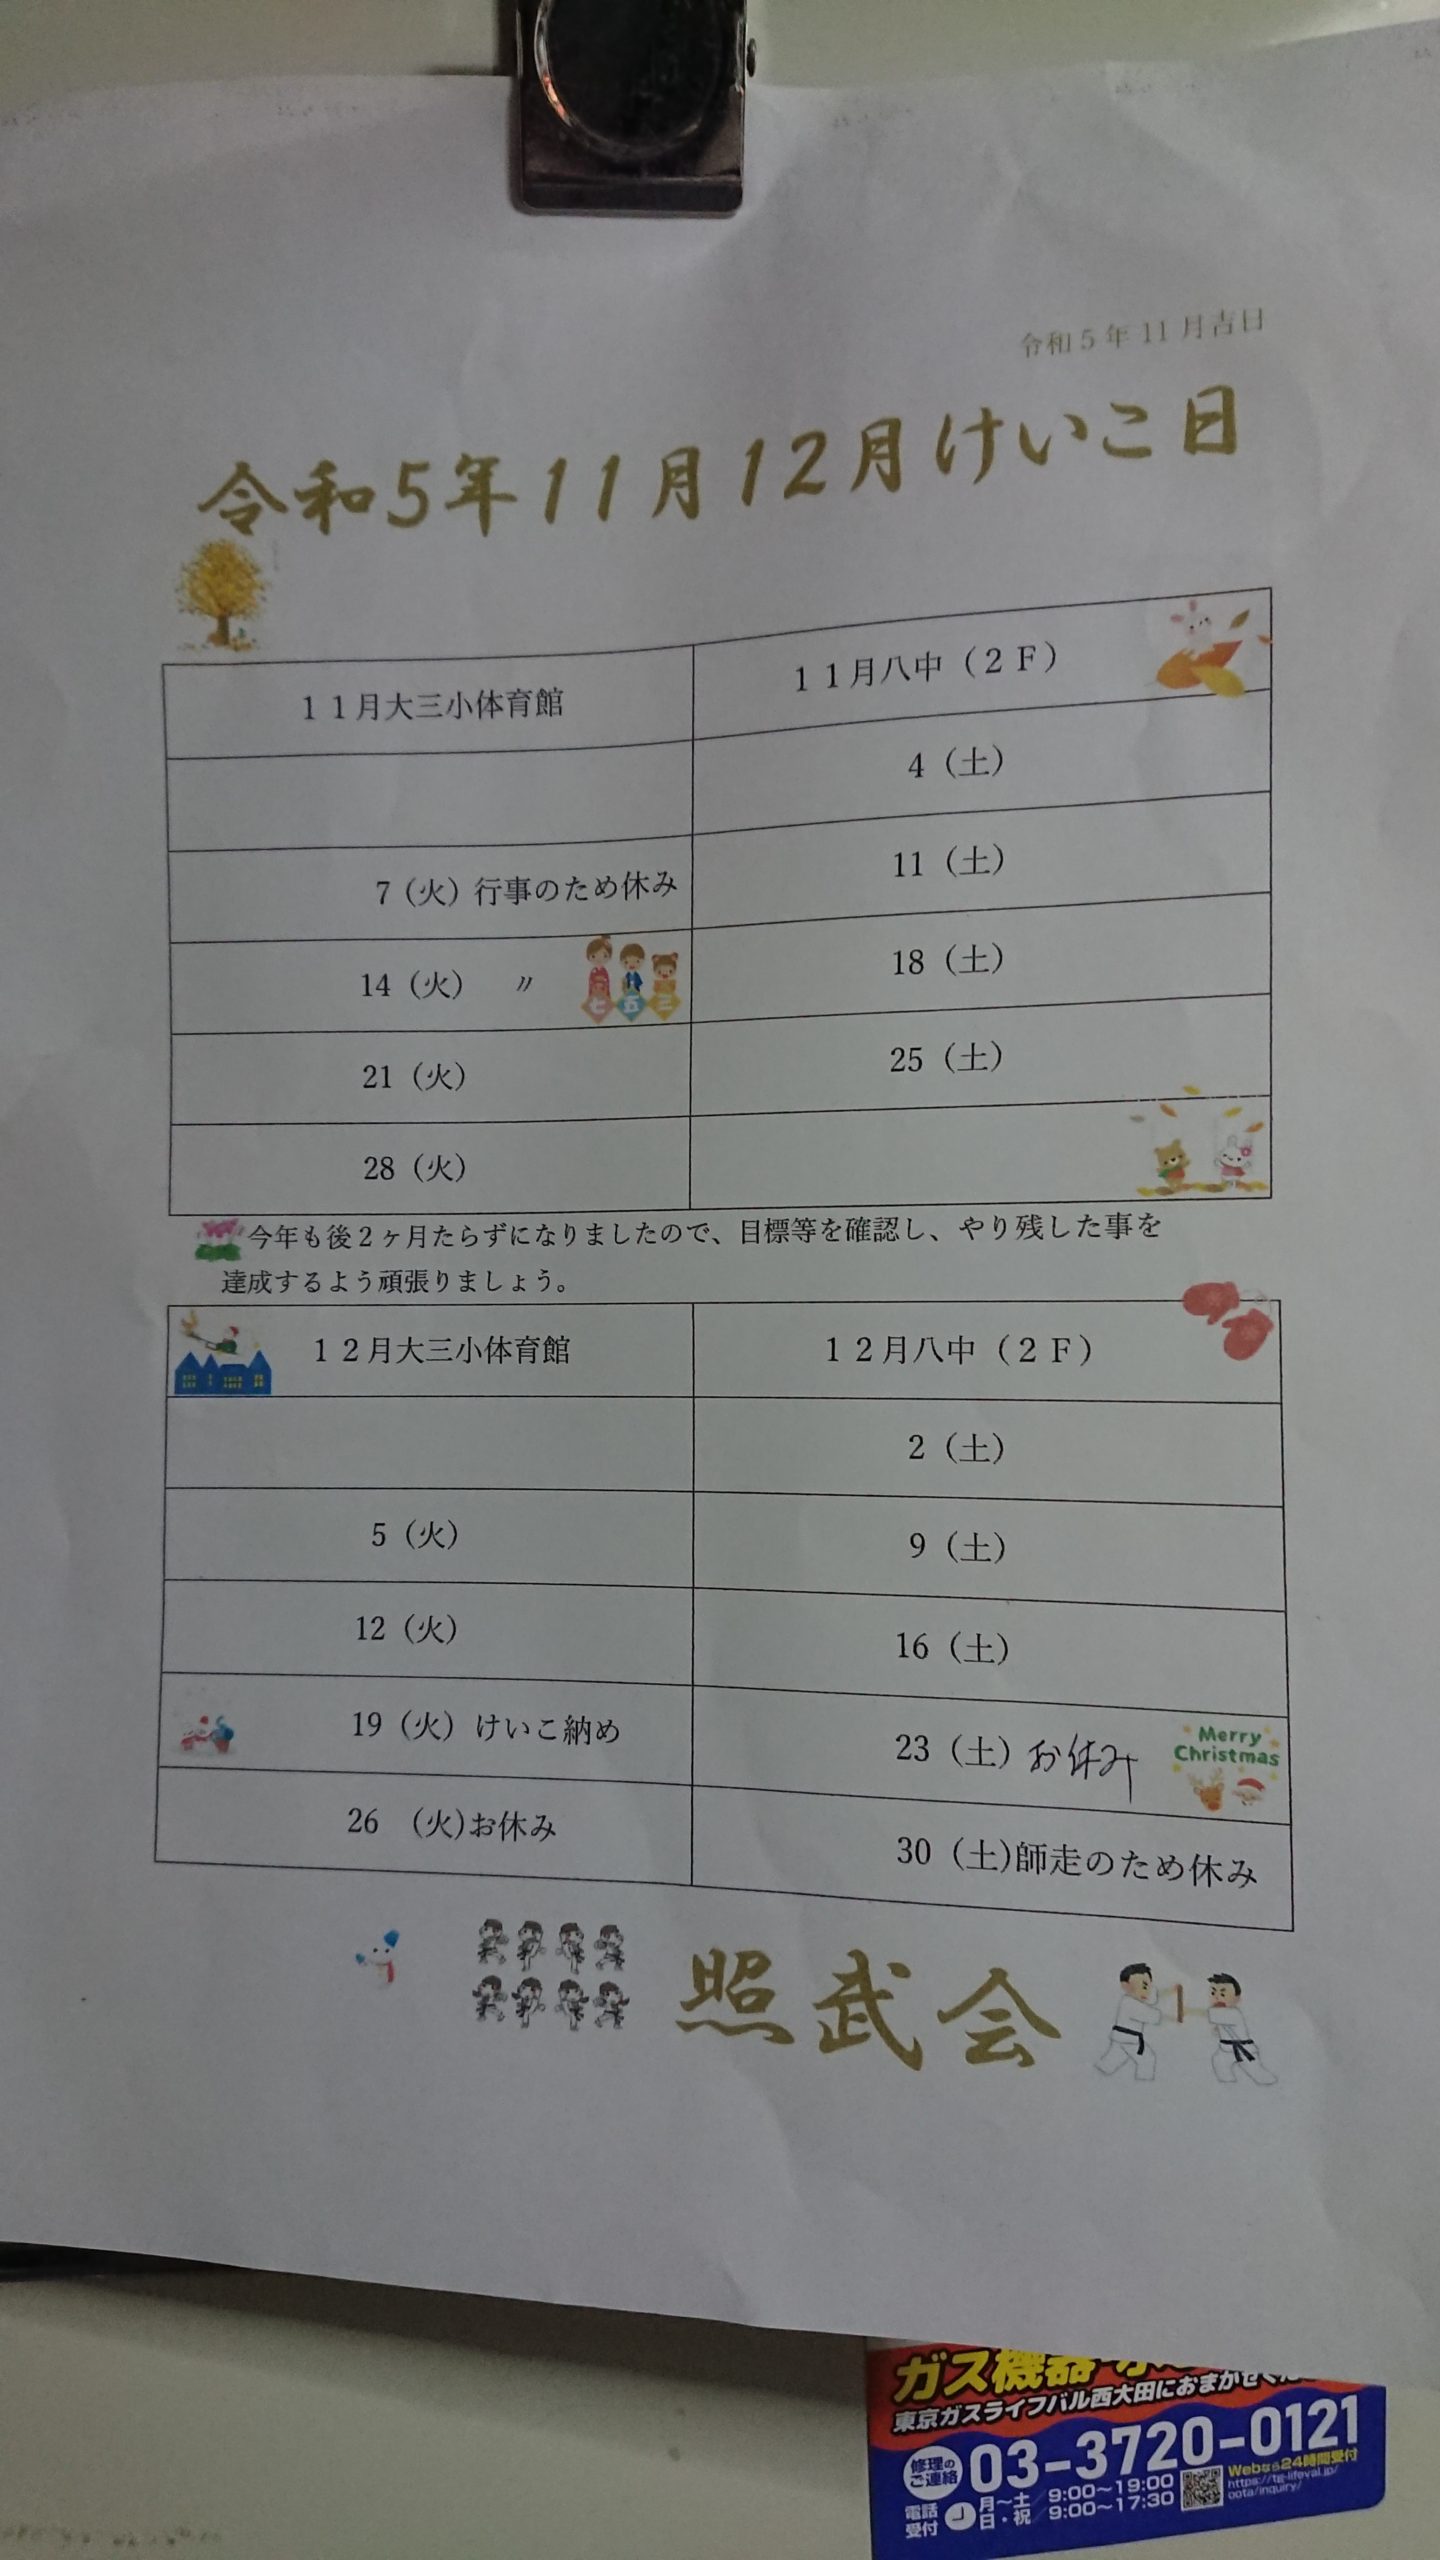 令和5年11月吉日
令和5年11月12月けいこ日
11月大三小体育館
11月八中(2F)
4(土)
7(火)行事のため休み
11(土)
14(火) 〃
七五三
18(土)
21(火)
25(土)
28(火)
今年も後2ヶ月たらずになりましたので、目標等を確認し、やり残した事を
達成するよう頑張りましょう。
12月大三小体育館
12月八中(2F)
2(土)
5(火)
9(土)
12(火)
16(土)
19(火)けいこ納め
23(土)お休み
Merry
Christmas
26 (火)お休み
30(土)師走のため休み
照武会
ガス機器
東京ガスライフバル西大田におまかせくだ
修理の
ご連絡
03-3720-0121
電話
受付
月〜土/9:00〜19:00
日・祝/9:00〜17:30
Webなら24時間受付
https://tg-lifeval.jp/
oota/inquiry/